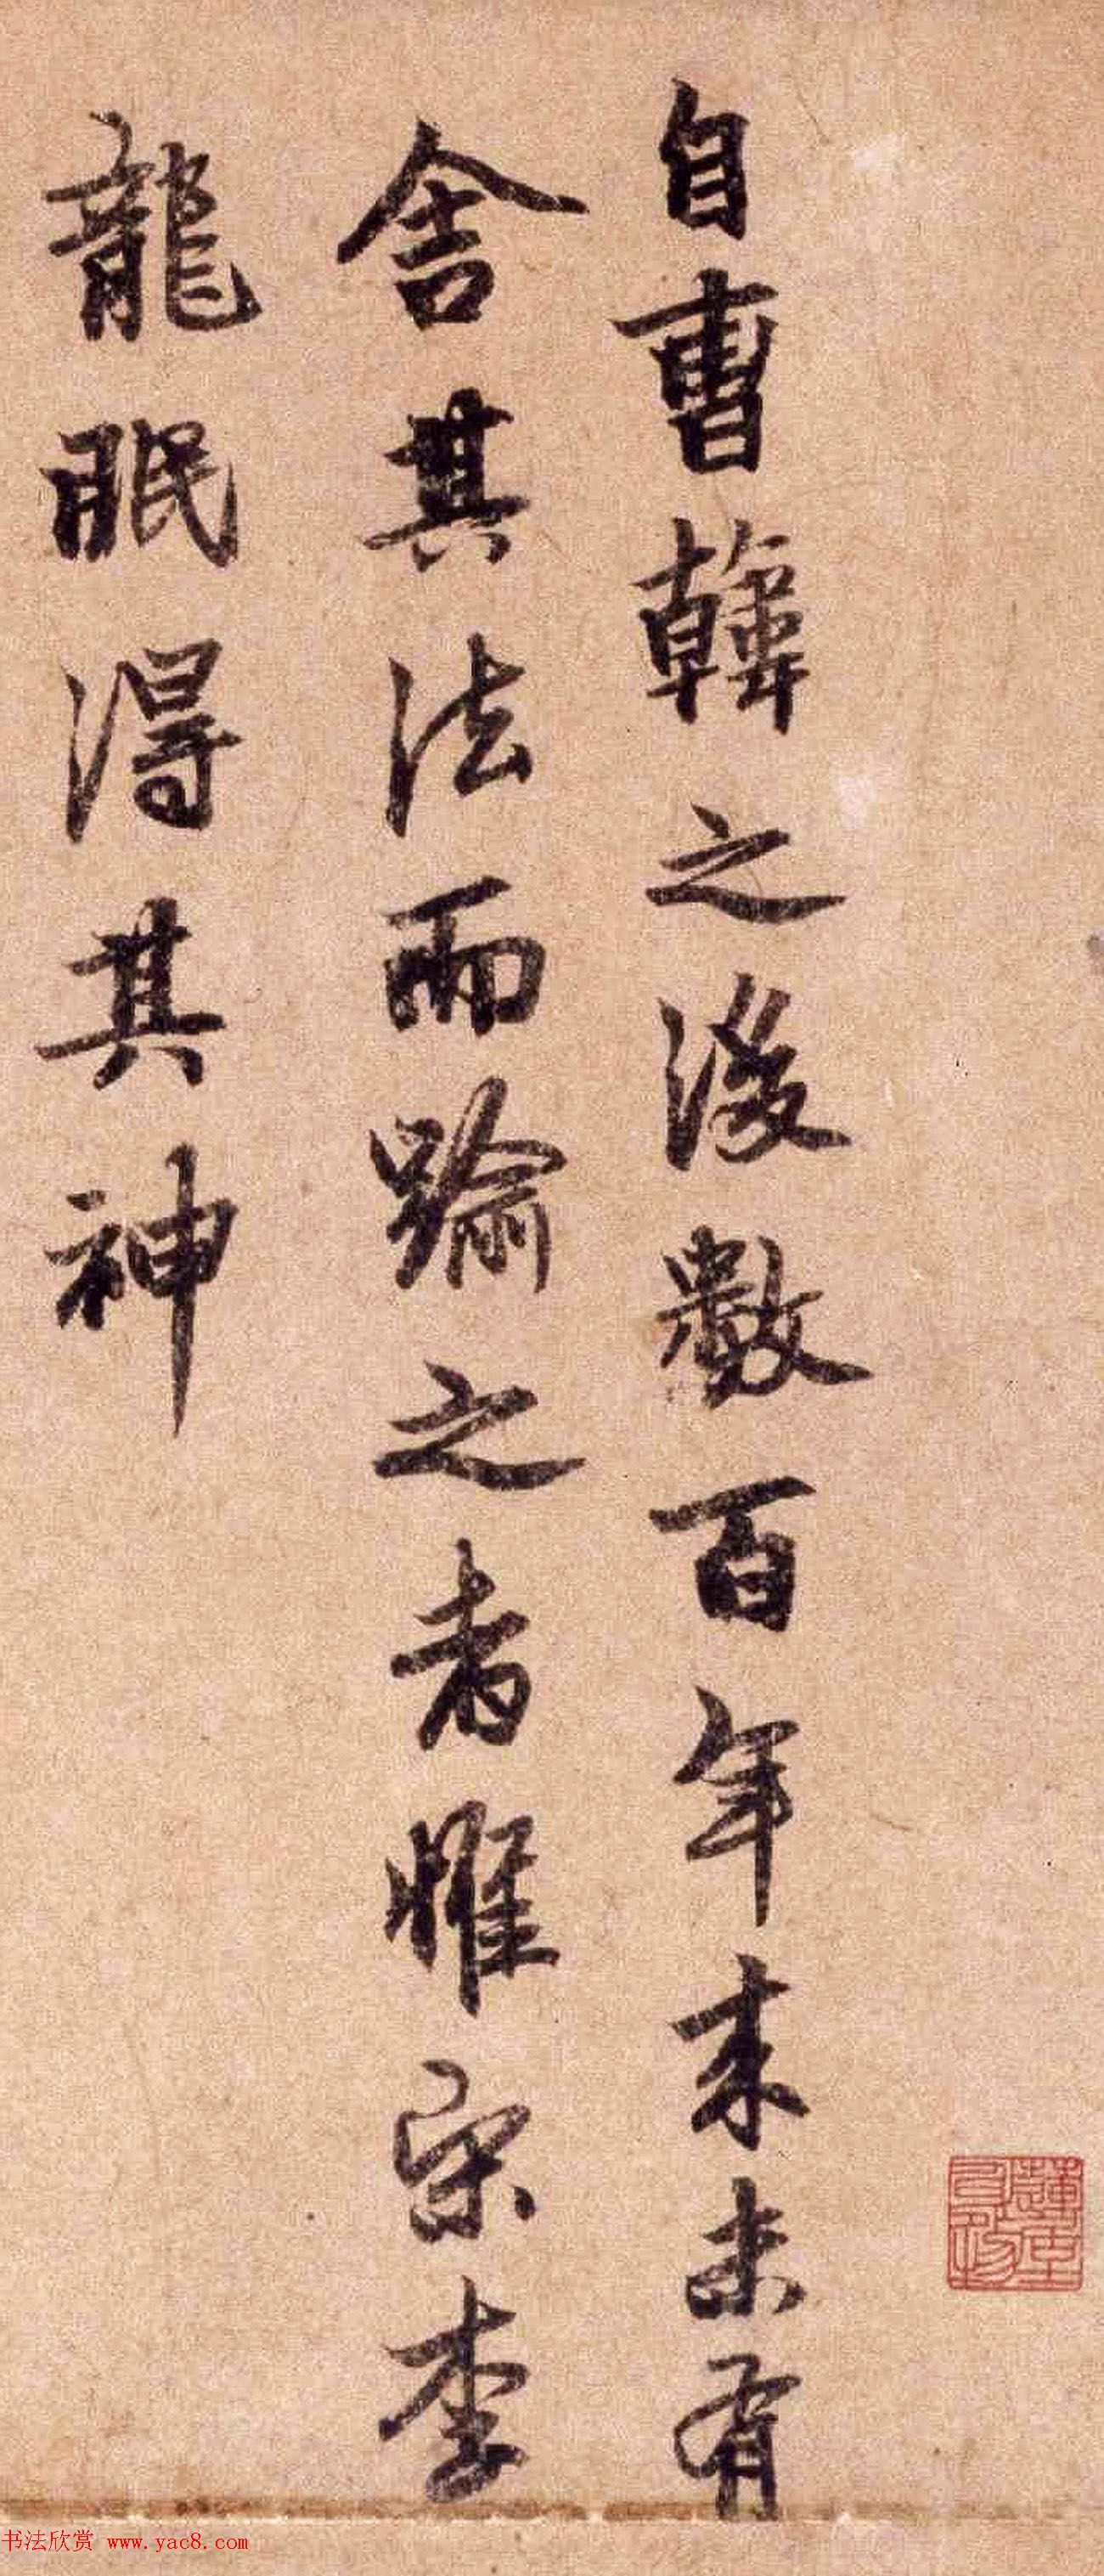 自曹韓之後數百年來未有
舍其法而踰之者惟宋李
龍眠得其神
书法欣赏 www.yac8.com